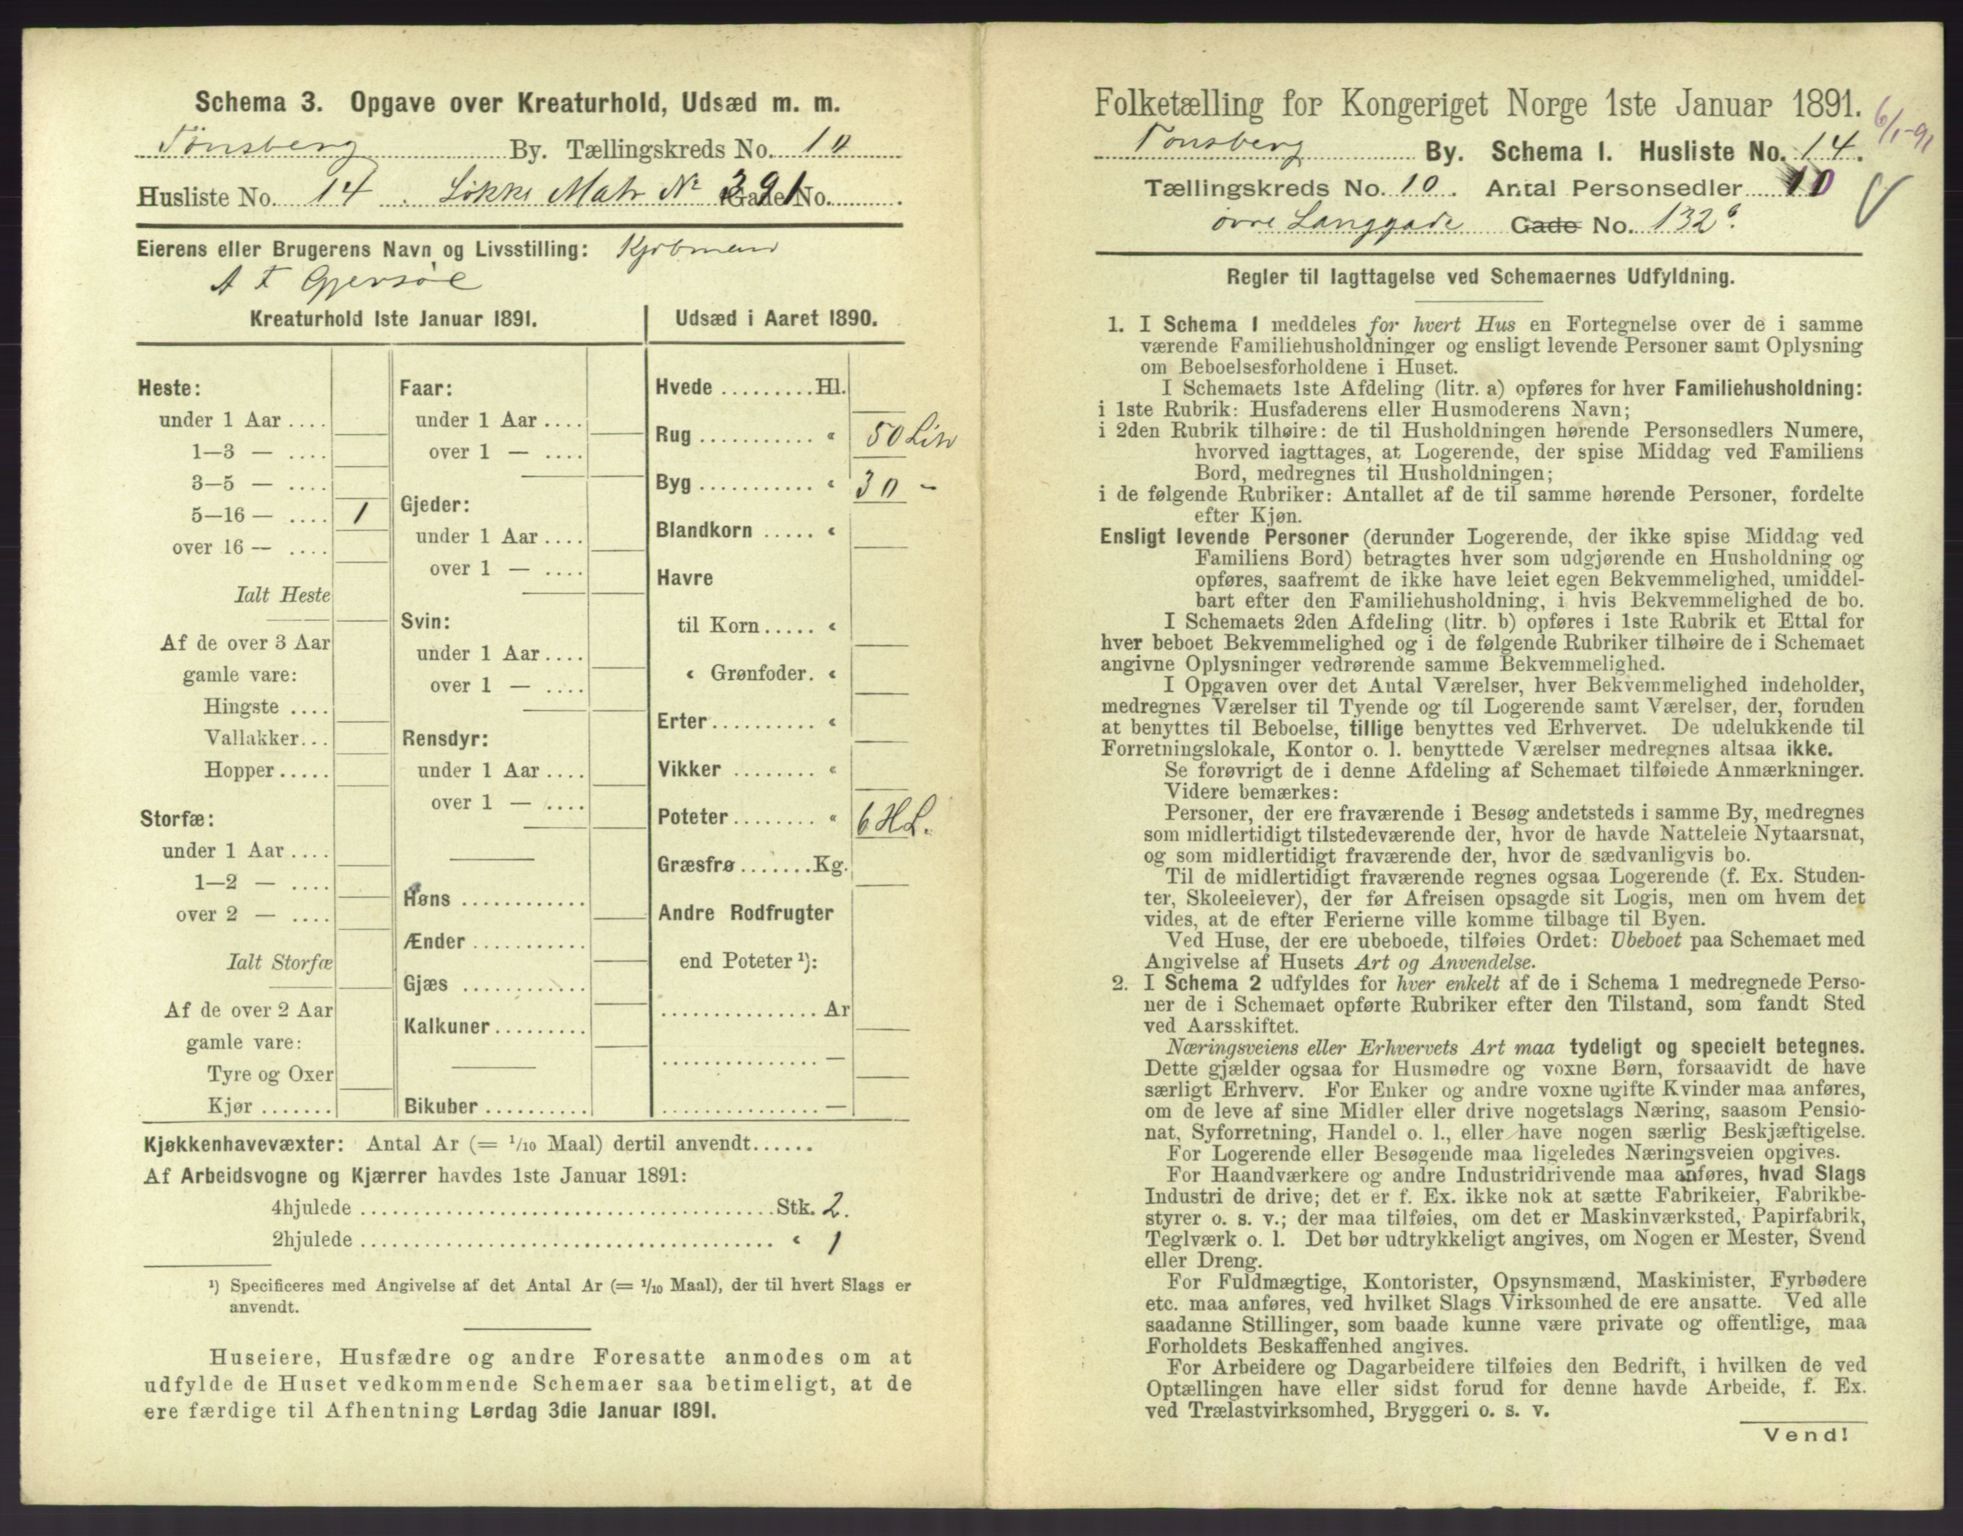 Schema 3. Opgave over Kreaturhold, Udsæd m. m.
Tönsberg By. Tællingskreds No. 10
Husliste No. 14. Løkke Matr No 391 Gade No.
Eierens eller Brugerens Navn og Livsstilling: Kjøbmand
A F Gjersöe
Kreaturhold 1ste Januar 1891.
Heste:
under 1 Aar ....
1—3 — ....
3—5 — ....
5—16 — .... 1
over 16 — ....
Ialt Heste
Af de over 3 Aar
gamle vare:
Hingste ....
Vallakker...
Hopper.....
Storfæ:
under 1 Aar....
1—2 — ....
over 2 — ....
Ialt Storfæ
Af de over 2 Aar
gamle vare:
Tyre og Oxer
Kjør .......
Faar:
under 1 Aar....
over 1 — ....
Gjeder:
under 1 Aar....
over 1 — ....
Svin:
under 1 Aar....
over 1 — ....
Rensdyr:
under 1 Aar....
over 1 — ....
Høns ............
Ænder ...........
Gjæs ............
Kalkuner.........
Bikuber..........
Udsæd i Aaret 1890.
Hvede .........Hl.
Rug ........... « 50 Litr
Byg ........... « 30 -
Blandkorn ..... «
Havre
til Korn..... «
« Grønfoder. «
Erter.......... «
Vikker ........ «
Poteter........ « 6 HL.
Græsfrø.......Kg.
Andre Rodfrugter
end Poteter ¹):
...............Ar
............... —
...............—
Kjøkkenhavevæxter: Antal Ar (= 1/10 Maal) dertil anvendt......
Af Arbeidsvogne og Kjærrer havdes 1ste Januar 1891:
4hjulede ......................................Stk. 2.
2hjulede ...................................... « 1
¹) Specificeres med Angivelse af det Antal Ar (= 1/10 Maal), der til hvert Slags er
anvendt.
Huseiere, Husfædre og andre Foresatte anmodes om at
udfylde de Huset vedkommende Schemaer saa betimeligt, at de
ere færdige til Afhentning Lørdag 3die Januar 1891.
Folketælling for Kongeriget Norge 1ste Januar 1891. 6/1-91
Tonsberg By. Schema I. Husliste No. 14.
Tællingskreds No. 10. Antal Personsedler 10
övre Langgade Gade No. 132b.
Regler til Iagttagelse ved Schemaernes Udfyldning.
1. I Schema 1 meddeles for hvert Hus en Fortegnelse over de i samme
værende Familiehusholdninger og ensligt levende Personer samt Oplysning
om Beboelsesforholdene i Huset.
I Schemaets 1ste Afdeling (litr. a) opføres for hver Familiehusholdning:
i 1ste Rubrik: Husfaderens eller Husmoderens Navn;
i 2den Rubrik tilhøire: de til Husholdningen hørende Personsedlers Numere,
hvorved iagttages, at Logerende, der spise Middag ved Familiens
Bord, medregnes til Husholdningen;
i de følgende Rubriker: Antallet af de til samme hørende Personer, fordelte
efter Kjøn.
Ensligt levende Personer (derunder Logerende, der ikke spise Middag ved
Familiens Bord) betragtes hver som udgjørende en Husholdning og
opføres, saafremt de ikke have leiet egen Bekvemmelighed, umiddel-
bart efter den Familiehusholdning, i hvis Bekvemmelighed de bo.
I Schemaets 2den Afdeling (litr. b) opføres i 1ste Rubrik et Ettal for
hver beboet Bekvemmelighed og i de følgende Rubriker tilhøire de i Schemaet
angivne Oplysninger vedrørende samme Bekvemmelighed.
I Opgaven over det Antal Værelser, hver Bekvemmelighed indeholder,
medregnes Værelser til Tyende og til Logerende samt Værelser, der, foruden
at benyttes til Beboelse, tillige benyttes ved Erhvervet. De udelukkende til
Forretningslokale, Kontor o. l. benyttede Værelser medregnes altsaa ikke.
Se forøvrigt de i denne Afdeling af Schemaet tilføiede Anmærkninger.
Videre bemærkes:
Personer, der ere fraværende i Besøg andetsteds i samme By, medregnes
som midlertidigt tilstedeværende der, hvor de havde Natteleie Nytaarsnat,
og som midlertidigt fraværende der, hvor de sædvanligvis bo.
Til de midlertidigt fraværende regnes ogsaa Logerende (f. Ex. Studen-
ter, Skoleelever), der før Afreisen opsagde sit Logis, men om hvem det
vides, at de efter Ferierne ville komme tilbage til Byen.
Ved Huse, der ere ubeboede, tilføies Ordet: Ubeboet paa Schemaet med
Angivelse af Husets Art og Anvendelse.
2. I Schema 2 udfyldes for hver enkelt af de i Schema 1 medregnede Perso-
ner de i Schemaet opførte Rubriker efter den Tilstand, som fandt Sted
ved Aarsskiftet.
Næringsveiens eller Erhvervets Art maa tydeligt og specielt betegnes.
Dette gjælder ogsaa for Husmødre og voxne Børn, forsaavidt de have
særligt Erhverv. For Enker og andre voxne ugifte Kvinder maa anføres,
om de leve af sine Midler eller drive nogetslags Næring, saasom Pensio-
nat, Syforretning, Handel o. l., eller have nogen særlig Beskjæftigelse.
For Logerende eller Besøgende maa ligeledes Næringsveien opgives.
For Haandværkere og andre Industridrivende maa anføres, hvad Slags
Industri de drive; det er f. Ex. ikke nok at sætte Fabrikeier, Fabrikbe-
styrer o. s. v.; der maa tilføies, om det er Maskinværksted, Papirfabrik,
Teglværk o. l. Det bør udtrykkeligt angives, om Nogen er Mester, Svend
eller Dreng.
For Fuldmægtige, Kontorister, Opsynsmænd, Maskinister, Fyrbødere
etc. maa anføres, ved hvilket Slags Virksomhed de ere ansatte. Ved alle
saadanne Stillinger, som baade kunne være private og offentlige, maa
Forholdets Beskaffenhed angives.
For Arbeidere og Dagarbeidere tilføies den Bedrift, i hvilken de ved
Optællingen have eller sidst forud for denne havde Arbeide, f. Ex.
ved Trælastvirksomhed, Bryggeri o. s. v.
Vend!